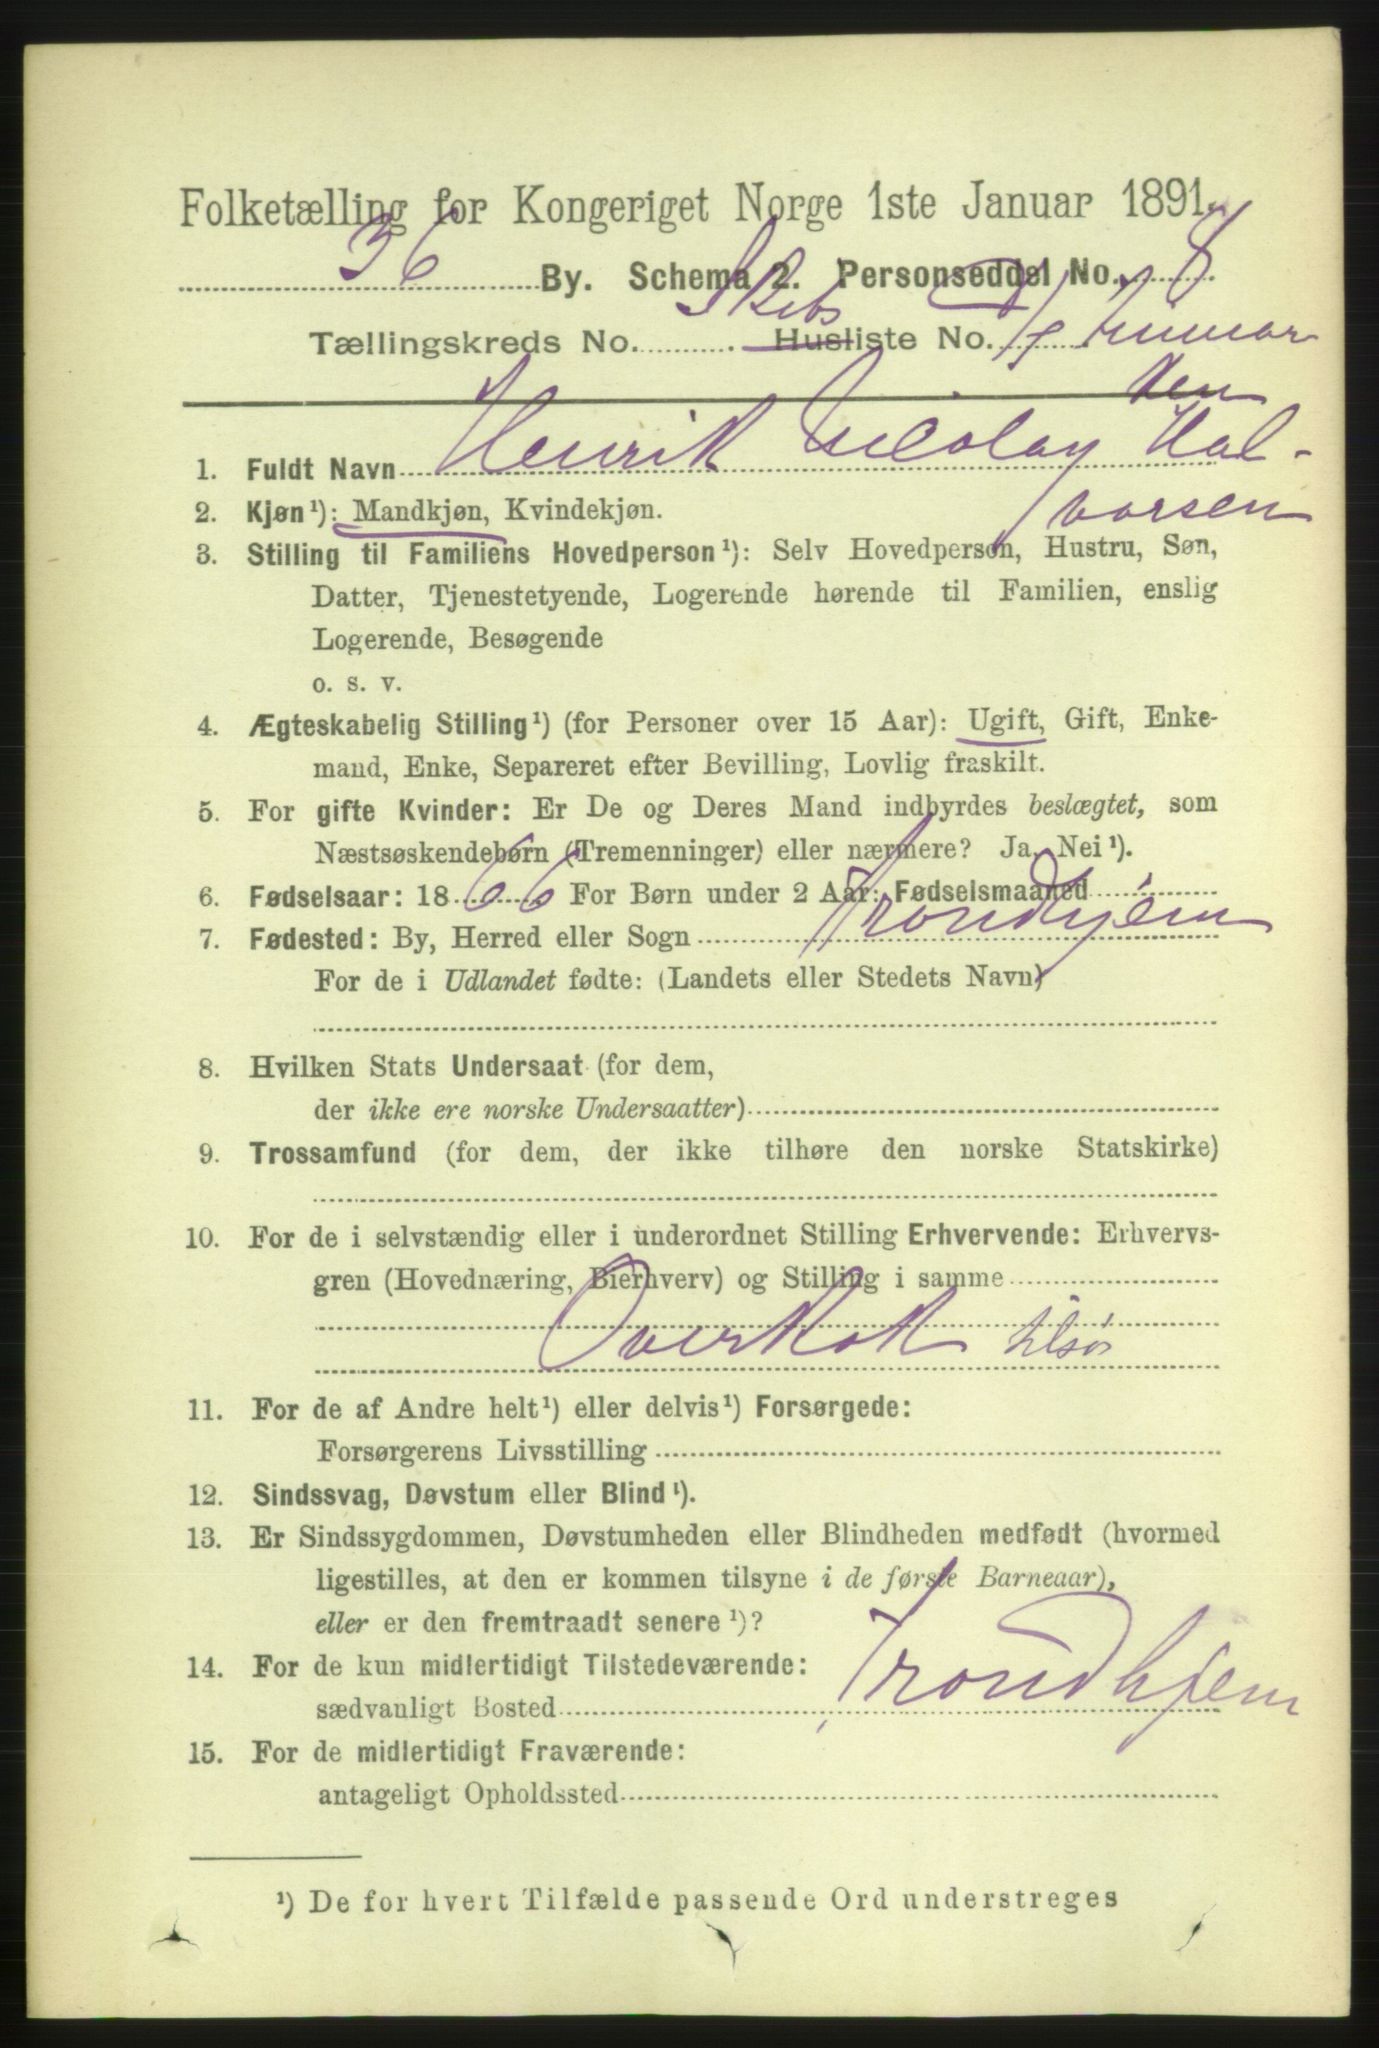 Folketælling for Kongeriget Norge 1ste Januar 1891.
36 By. Schema 2. Personseddel No. 8.
Tællingskreds No. Skibs Husliste No.
1. Fuldt Navn Henrik Nicolay Hal-
vorsen
2. Kjøn¹): Mandkjøn, Kvindekjøn.
3. Stilling til Familiens Hovedperson¹): Selv Hovedperson, Hustru, Søn,
Datter, Tjenestetyende, Logerende hørende til Familien, enslig
Logerende, Besøgende
o. s. v.
4. Ægteskabelig Stilling¹) (for Personer over 15 Aar): Ugift, Gift, Enke-
mand, Enke, Separeret efter Bevilling, Lovlig fraskilt.
5. For gifte Kvinder: Er De og Deres Mand indbyrdes beslægtet, som
Næstsøskendebørn (Tremenninger) eller nærmere? Ja, Nei¹).
6. Fødselsaar: 1866 For Børn under 2 Aar: Fødselsmaaned
7. Fødested: By, Herred eller Sogn Trondhjem
For de i Udlandet fødte: (Landets eller Stedets Navn)
8. Hvilken Stats Undersaat (for dem,
der ikke ere norske Undersaatter)
9. Trossamfund (for dem, der ikke tilhøre den norske Statskirke)
10. For de i selvstændig eller i underordnet Stilling Erhvervende: Erhvervs-
gren (Hovednæring, Bierhverv) og Stilling i samme
Overkok tilsøs
11. For de af Andre helt¹) eller delvis¹) Forsørgede:
Forsørgerens Livsstilling
12. Sindssvag, Døvstum eller Blind¹).
13. Er Sindssygdommen, Døvstumheden eller Blindheden medfødt (hvormed
ligestilles, at den er kommen tilsyne i de første Barneaar),
eller er den fremtraadt senere¹)?
14. For de kun midlertidigt Tilstedeværende:
sædvanligt Bosted Trondhjem
15. For de midlertidigt Fraværende:
antageligt Opholdssted
¹) De for hvert Tilfælde passende Ord understreges